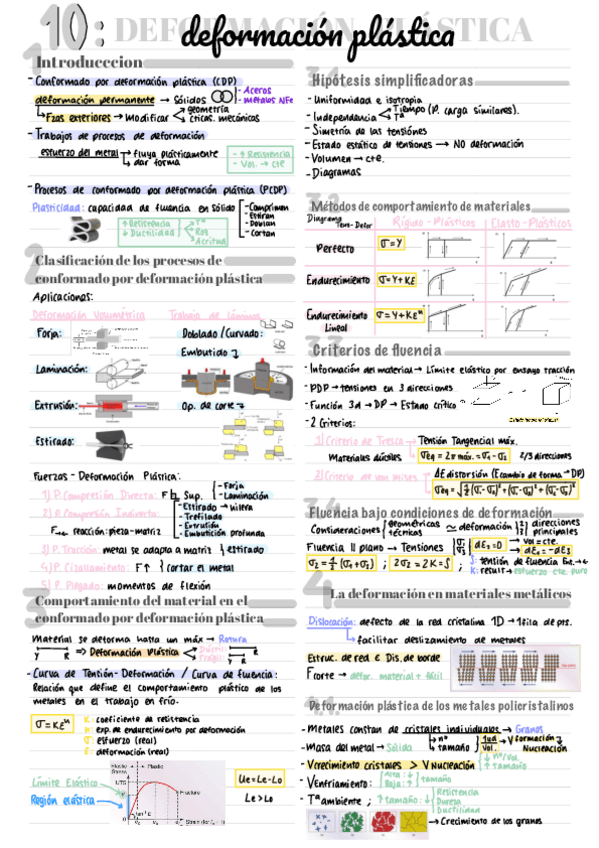 10): DEFORMACIÓN PLÁSTICA
deformación plástica
1
Introducceion
- Conformado por deformación plástica (CDP)
deformación permanente → Sólidos - Aceros
- metales NFe
↳ Fzas exteriores → Modificar geometría
cticas. mecánicas
- Trabajos de procesos de deformación
esfuerzo del metal → fluya plásticamente
→ dar forma
- ↑ Resistencia
- Vol. → cte
- Procesos de conformado por deformación plática (PCDP)
Plasticidad: capacidad de fluencia en Sólido - Comprimen
- Estiran
- Doblan
- Cortan
↑ Resistencia
↓ Ductilidad
Acritud
2
Clasificación de los procesos de
conformado por deformación plástica
Aplicaciones:
Deformación Volumétrica
Trabajo de láminas
Forja:
Doblado/Curvado:
Embutido
Laminación:
Extrusión:
Op. de corte
Estirado:
Fuerzas - Deformación Plástica:
1) P. Compresión Directa: F Sup. - Forja
- Laminación
2) P. Compresión Indirecta:
F reacción: pieza-matriz
- Estirado → hilera
- Trefilado
- Extrusión
- Embutición profunda
3) P. Tracción: metal se adapta a matriz estirado
4) P. Cizallamiento: F↑ cortar el metal
5) P. Plegado: momentos de flexión
3
Comportamiento del material en el
conformado por deformación plástica
Material se deforma hasta un máx → Rotura
⇒ Deformación Plástica
- Curva de Tentión-Deformación / Curva de fluencia:
Relación que define el comportamiento plástico de los
metales en el trabajo en frío.
σ = Kεⁿ
K: coeficiente de resistencia
n: exp. de endurecimiento por deformación
σ: esfuerzo (real)
ε: deformación (real)
Límite Elástico
Región elástica
Elastic
Plastic
Stress
UTS
Fracture
Le > Lo
3.1
Hipótesis simplificadoras
- Uniformidad e isotropia
- Independencia Tiempo (P. carga similares).
Tª
- Simetría de las tensiones
- Estado estático de tensiones → NO deformación
- Volumen → cte.
- Diagramas
3.2
Métodos de comportamiento de materiales
Diagrama
Tens-Defor
Rígido-Plásticos
Elasto-Plásticos
Perfecto
σ = Y
Endurecimiento
σ = Y + Kε
Endurecimiento
Lineal
σ = Y + Kεⁿ
3.3
Criterios de fluencia
- Información del material → Límite elástico por ensayo tracción
- PDP → tensiones en 3 direcciones
- Función 3d → DP → Estado crítico
- 2 Criterios:
1) Criterio de Tresca → Tensión Tangencial máx.
Materiales dúctiles
2/3 direcciones
2) Criterio de von mises
ΔE distorsión (E cambio de forma → DP)
3.4
Fluencia bajo condiciones de deformación
Consideraciones geométricas
técnicas
≃ deformación
direcciones
principales
Fluencia II plano → Tensiones
dε₂ = 0 → Vol = cte.
→ dε₁ = -dε₃
S: tensión de fluencia
4
La deformación en materiales metálicos
Dislocación: defecto de la red cristalina 1D → 1 fila de pts.
↳ facilitar deslizamiento de metales
Estruc. de red e Dis. de borde
F corte → defor. material + fácil
4.1.
Deformación plástica de los metales policristalinos
- Metales constan de cristales individuales → Granos
- Masa del metal → Sólida
nº
tamaño
Vformación y
Nucleación
- Vcrecimiento cristales > V Nucleación
↓ nº/Vol.
↑ tamaño
- Venfriamiento: Alta: ↓
Baja: ↑
tamaño
- Tª ambiente; ↑ tamaño: ↓ Resistencia
Dureza
Ductilidad
→ Crecimiento de los granos